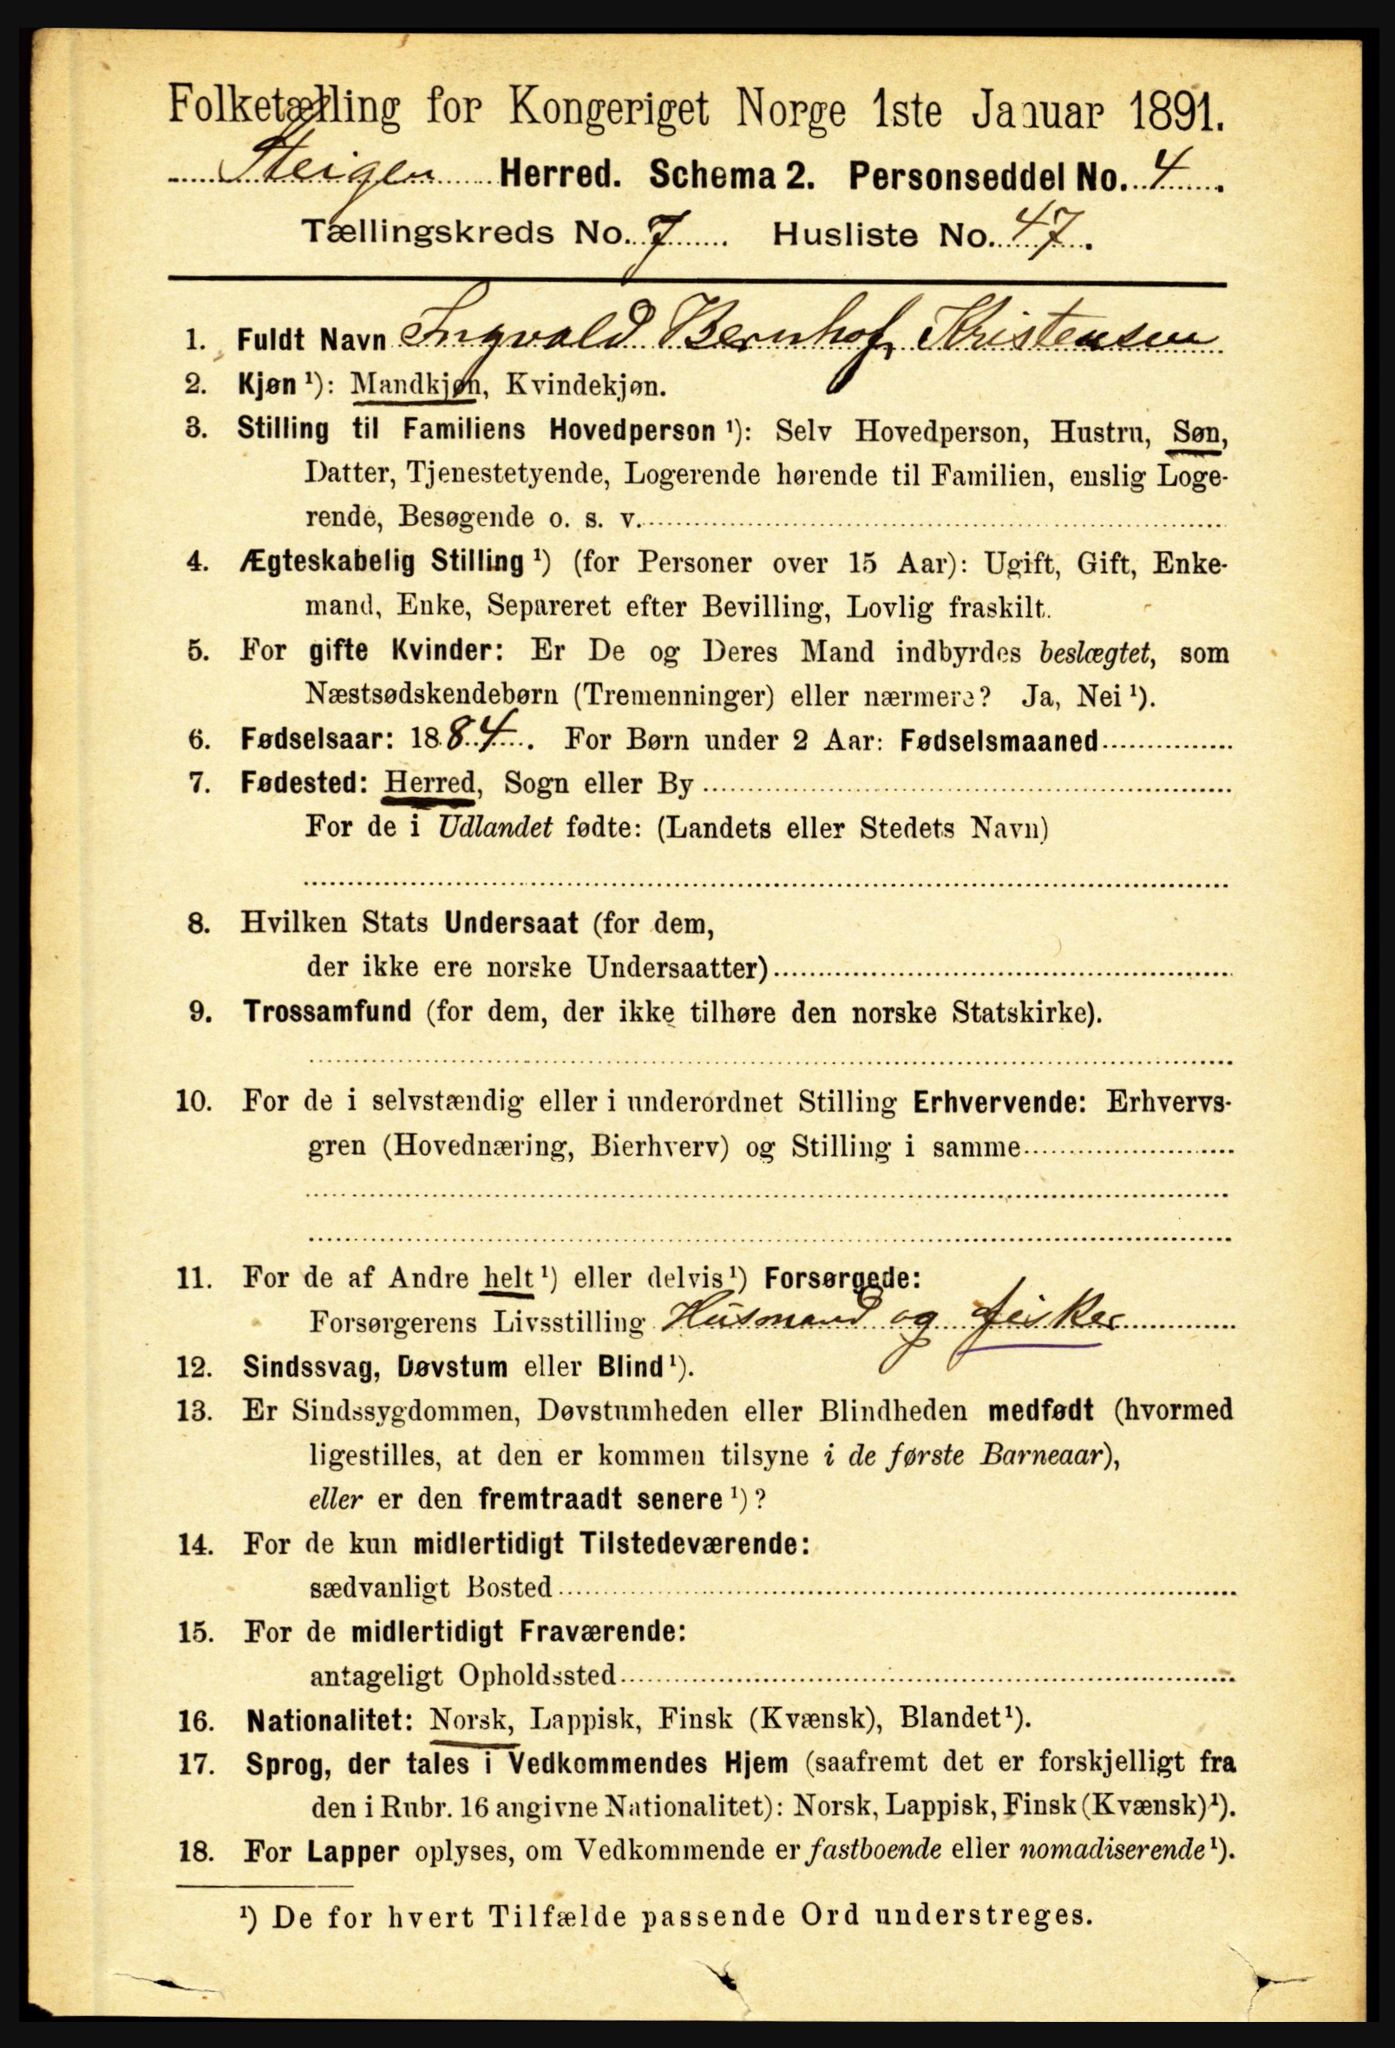 Folketælling for Kongeriget Norge 1ste Januar 1891.
Steigen Herred. Schema 2. Personseddel No. 4.
Tællingskreds No. 7. Husliste No. 47.
1. Fuldt Navn Ingvald Bernhof Kristensen
2. Kjøn ¹): Mandkjøn, Kvindekjøn.
3. Stilling til Familiens Hovedperson ¹): Selv Hovedperson, Hustru, Søn,
Datter, Tjenestetyende, Logerende hørende til Familien, enslig Loge-
rende, Besøgende o. s. v.
4. Ægteskabelig Stilling ¹) (for Personer over 15 Aar): Ugift, Gift, Enke-
mand, Enke, Separeret efter Bevilling, Lovlig fraskilt.
5. For gifte Kvinder: Er De og Deres Mand indbyrdes beslægtet, som
Næstsødskendebørn (Tremenninger) eller nærmere? Ja, Nei ¹).
6. Fødselsaar: 1884. For Børn under 2 Aar: Fødselsmaaned
7. Fødested: Herred, Sogn eller By
For de i Udlandet fødte: (Landets eller Stedets Navn)
8. Hvilken Stats Undersaat (for dem,
der ikke ere norske Undersaatter)
9. Trossamfund (for dem, der ikke tilhøre den norske Statskirke).
10. For de i selvstændig eller i underordnet Stilling Erhvervende: Erhvervs-
gren (Hovednæring, Bierhverv) og Stilling i samme
11. For de af Andre helt ¹) eller delvis ¹) Forsørgede:
Forsørgerens Livsstilling Husmand og fisker
12. Sindssvag, Døvstum eller Blind ¹).
13. Er Sindssygdommen, Døvstumheden eller Blindheden medfødt (hvormed
ligestilles, at den er kommen tilsyne i de første Barneaar),
eller er den fremtraadt senere ¹)?
14. For de kun midlertidigt Tilstedeværende:
sædvanligt Bosted
15. For de midlertidigt Fraværende:
antageligt Opholdssted
16. Nationalitet: Norsk, Lappisk, Finsk (Kvænsk), Blandet ¹).
17. Sprog, der tales i Vedkommendes Hjem (saafremt det er forskjelligt fra
den i Rubr. 16 angivne Nationalitet): Norsk, Lappisk, Finsk (Kvænsk) ¹).
18. For Lapper oplyses, om Vedkommende er fastboende eller nomadiserende ¹).
¹) De for hvert Tilfælde passende Ord understreges.